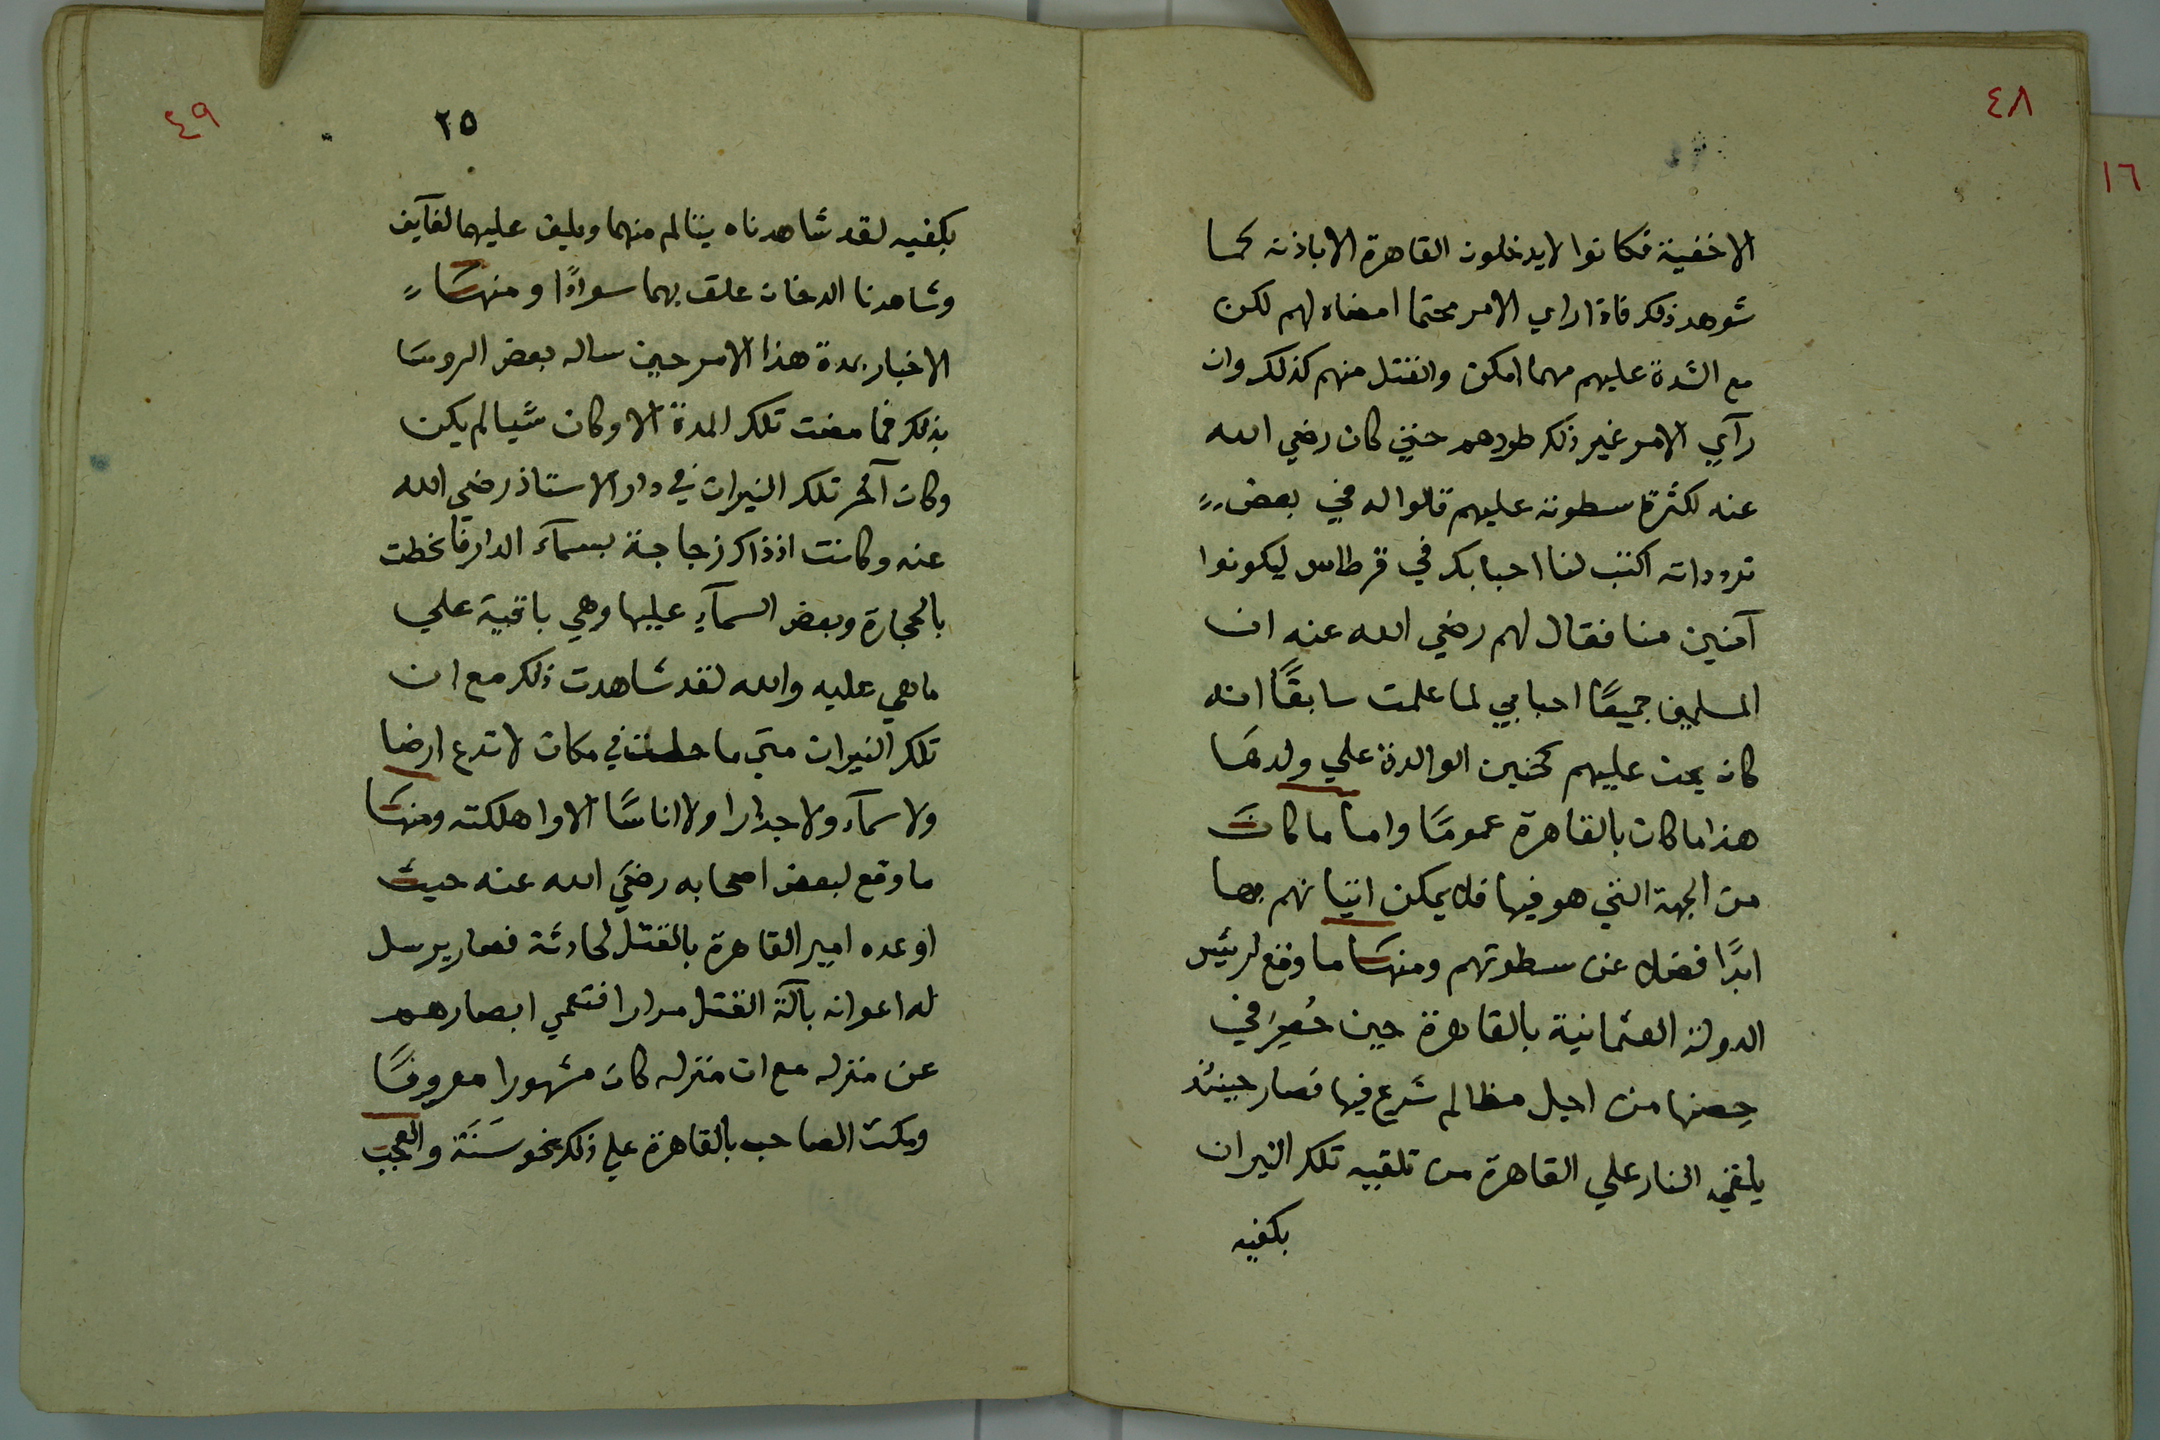 ٤٨
١٦
الاخفية فكانوا لا يدخلون القاهرة الا باذنه كما
شوهد ذلك فاذا راي الامر محتما امضاه لهم لكن
مع الشدة عليهم مهما امكن والقتل منهم كذلك وان
رآي الامر غير ذلك طردهم حتي كان رضي الله
عنه لكثرة سطوته عليهم قالوا له في بعض
تردداته اكتب لنا احبابك في قرطاس ليكونوا
آمنين منا فقال لهم رضي الله عنه ان
المسلمين جميعًا احبابي لما علمت سابقًا انه
كان يحن عليهم كحنين الوالدة علي ولدها
هذا ما كان بالقاهرة عمومًا واما ما كان
من الجهة التي هو فيها فلا يمكن اتيانهم بها
ابدًا فضلا عن سطوتهم ومنها ما وقع لرئيس
الدولة العثمانية بالقاهرة حين حُصِرَ في
حِصنها من اجل مظالم شرع فيها فصار حينئذ
يلقي النار علي القاهرة من تلقيه تلك النيران
بكفيه
٤٩
٢٥
بكفيه لقد شاهدناه يتالم منهما ويلف عليهما لفآيف
وشاهدنا الدخان علق بهما سوادًا ومنها
الاخبار بمدة هذا الامر حين ساله بعض الروسا
بذلك فما مضت تلك المدة الا وكان شيا لم يكن
وكان آخر تلك النيران في دار الاستاذ رضي الله
عنه وكانت اذ ذاك زجاجة بسمآء الدار فانخطت
بالحجارة وبعض السمآء عليها وهي باقية علي
ما هي عليه والله لقد شاهدت ذلك مع ان
تلك النيران متي ما حلت في مكان لا تدع ارضا
ولا سمآء ولا جدارا ولا اناسًا الا واهلكته ومنها
ما وقع لبعض اصحابه رضي الله عنه حيث
اوعده امير القاهرة بالقتل لحادثة فصار يرسل
له اعوانه بآلة القتل مرارا فتعمي ابصارهم
عن منزله مع ان منزله كان مشهورا معروفًا
ومكث الصاحب بالقاهرة علي ذلك نحو سَنَة والعجب